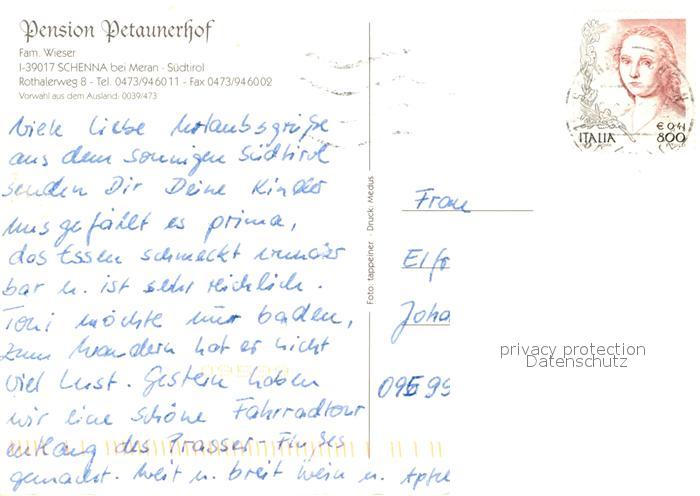 Pension Petaunerhof
Fam. Wieser
I-39017 SCHENNA bei Meran · Südtirol
Rothalerweg 8 - Tel. 0473/946011 - Fax 0473/946002
Vorwahl aus dem Ausland: 0039/473
Viele liebe Urlaubsgrüße
aus dem sonnigen Südtirol
senden Dir Deine Kinder
Uns gefällt es prima,
das Essen schmeckt wunder
bar u. ist sehr reichlich.
Toni möchte nur baden,
zum Wandern hat er nicht
viel Lust. Gestern haben
wir eine schöne Fahrradtour
entlang des Prasser-Flußes
gemacht. Weit u. breit Wein u. Apfel
Foto: tappeiner · Druck: Medus
ITALIA € 0,41
800
Frau
Elfr
Joha
09599
privacy protection
Datenschutz